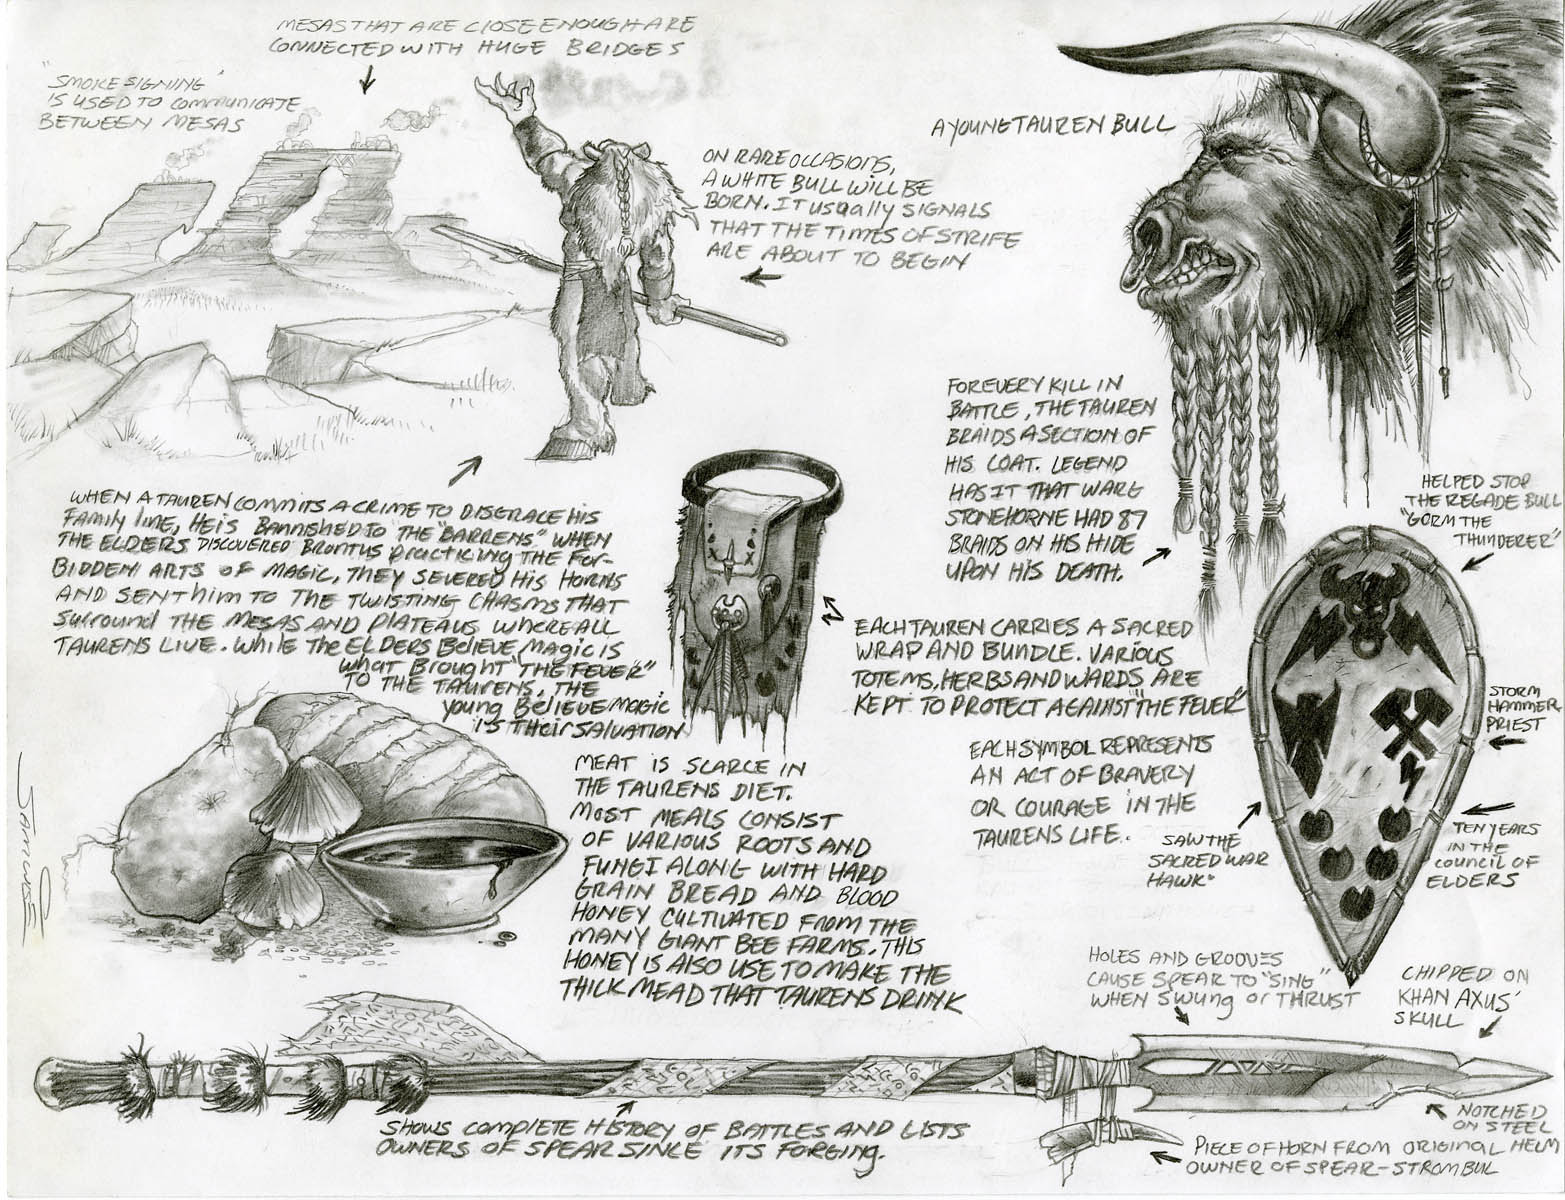 MESAS THAT ARE CLOSE ENOUGH ARE
CONNECTED WITH HUGE BRIDGES
"SMOKE SIGNING"
IS USED TO COMMUNICATE
BETWEEN MESAS
A YOUNG TAUREN BULL
ON RARE OCCASIONS,
A WHITE BULL WILL BE
BORN. IT USUALLY SIGNALS
THAT THE TIMES OF STRIFE
ARE ABOUT TO BEGIN
FOR EVERY KILL IN
BATTLE, THE TAUREN
BRAIDS A SECTION OF
HIS COAT. LEGEND
HAS IT THAT WARG
STONEHORNE HAD 89
BRAIDS ON HIS HIDE
UPON HIS DEATH.
WHEN A TAUREN COMMITS A CRIME TO DISGRACE HIS
FAMILY LINE, HE IS BANNISHED TO "THE "BARRENS" WHEN
THE ELDERS DISCOVERED BRONTUS PRACTICING THE FOR-
BIDDEN ARTS OF MAGIC, THEY SEVERED HIS HORNS
AND SENT HIM TO THE TWISTING CHASMS THAT
SURROUND THE MESAS AND PLATEAUS WHERE ALL
TAURENS LIVE. WHILE THE ELDERS BELIEVE MAGIC IS
WHAT BROUGHT "THE FEVER"
TO THE TAURENS, THE
YOUNG BELIEVE MAGIC
IS THEIR SALVATION
EACH TAUREN CARRIES A SACRED
WRAP AND BUNDLE. VARIOUS
TOTEMS, HERBS AND WARDS ARE
KEPT TO PROTECT AGAINST "THE FEVER"
HELPED STOP
THE REGADE BULL
"GORM THE
THUNDERER"
STORM
HAMMER
PRIEST
EACH SYMBOL REPRESENTS
AN ACT OF BRAVERY
OR COURAGE IN THE
TAURENS LIFE.
SAW THE
SACRED WAR
HAWK
TEN YEARS
IN THE
COUNCIL OF
ELDERS
MEAT IS SCARCE IN
THE TAURENS DIET.
MOST MEALS CONSIST
OF VARIOUS ROOTS AND
FUNGI ALONG WITH HARD
GRAIN BREAD AND BLOOD
HONEY CULTIVATED FROM THE
MANY GIANT BEE FARMS. THIS
HONEY IS ALSO USE TO MAKE THE
THICK MEAD THAT TAURENS DRINK
SAMWISE
HOLES AND GROOVES
CAUSE SPEAR TO "SING"
WHEN SWUNG OR THRUST
CHIPPED ON
KHAN AXUS'
SKULL
SHOWS COMPLETE HISTORY OF BATTLES AND LISTS
OWNERS OF SPEAR SINCE ITS FORGING.
NOTCHED
ON STEEL
HELM
PIECE OF HORN FROM ORIGINAL
OWNER OF SPEAR-STROMBUL